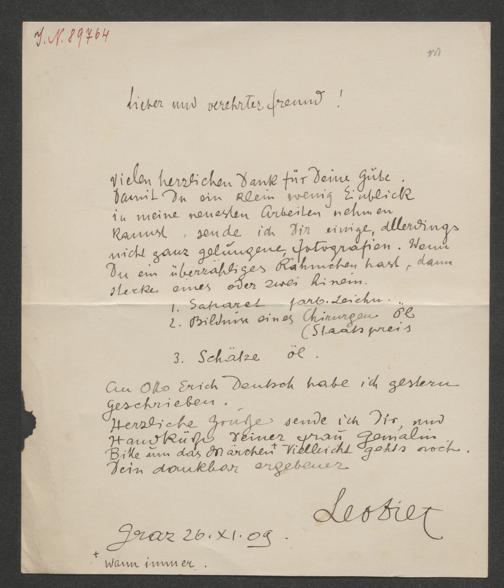 I.N. 89764
Lieber und verehrter Freund!
Vielen herzlichen Dank für Deine Güte.
Damit Du ein klein wenig Einblick
in meine neuesten Arbeiten nehmen
kannst, sende ich Dir einige, allerdings
nicht ganz gelungene Fotografien. Wenn
Du ein überzähliges Rähmchen hast, dann
stecke eines oder zwei hinein.
1. Saharet farb. Zeichn.
2. Bildnis eines Chirurgen Öl
(Staatspreis
3. Schätze Öl.
An Otto Erich Deutsch habe ich gestern
geschrieben.
Herzliche Grüße sende ich Dir, und
Handküße Deiner Frau Gemalin
Bitte um das Märchen + Vielleicht gehts noch.
Dein dankbar ergebener
Leo Diet
Graz 26.XI.09.
+ wann immer.